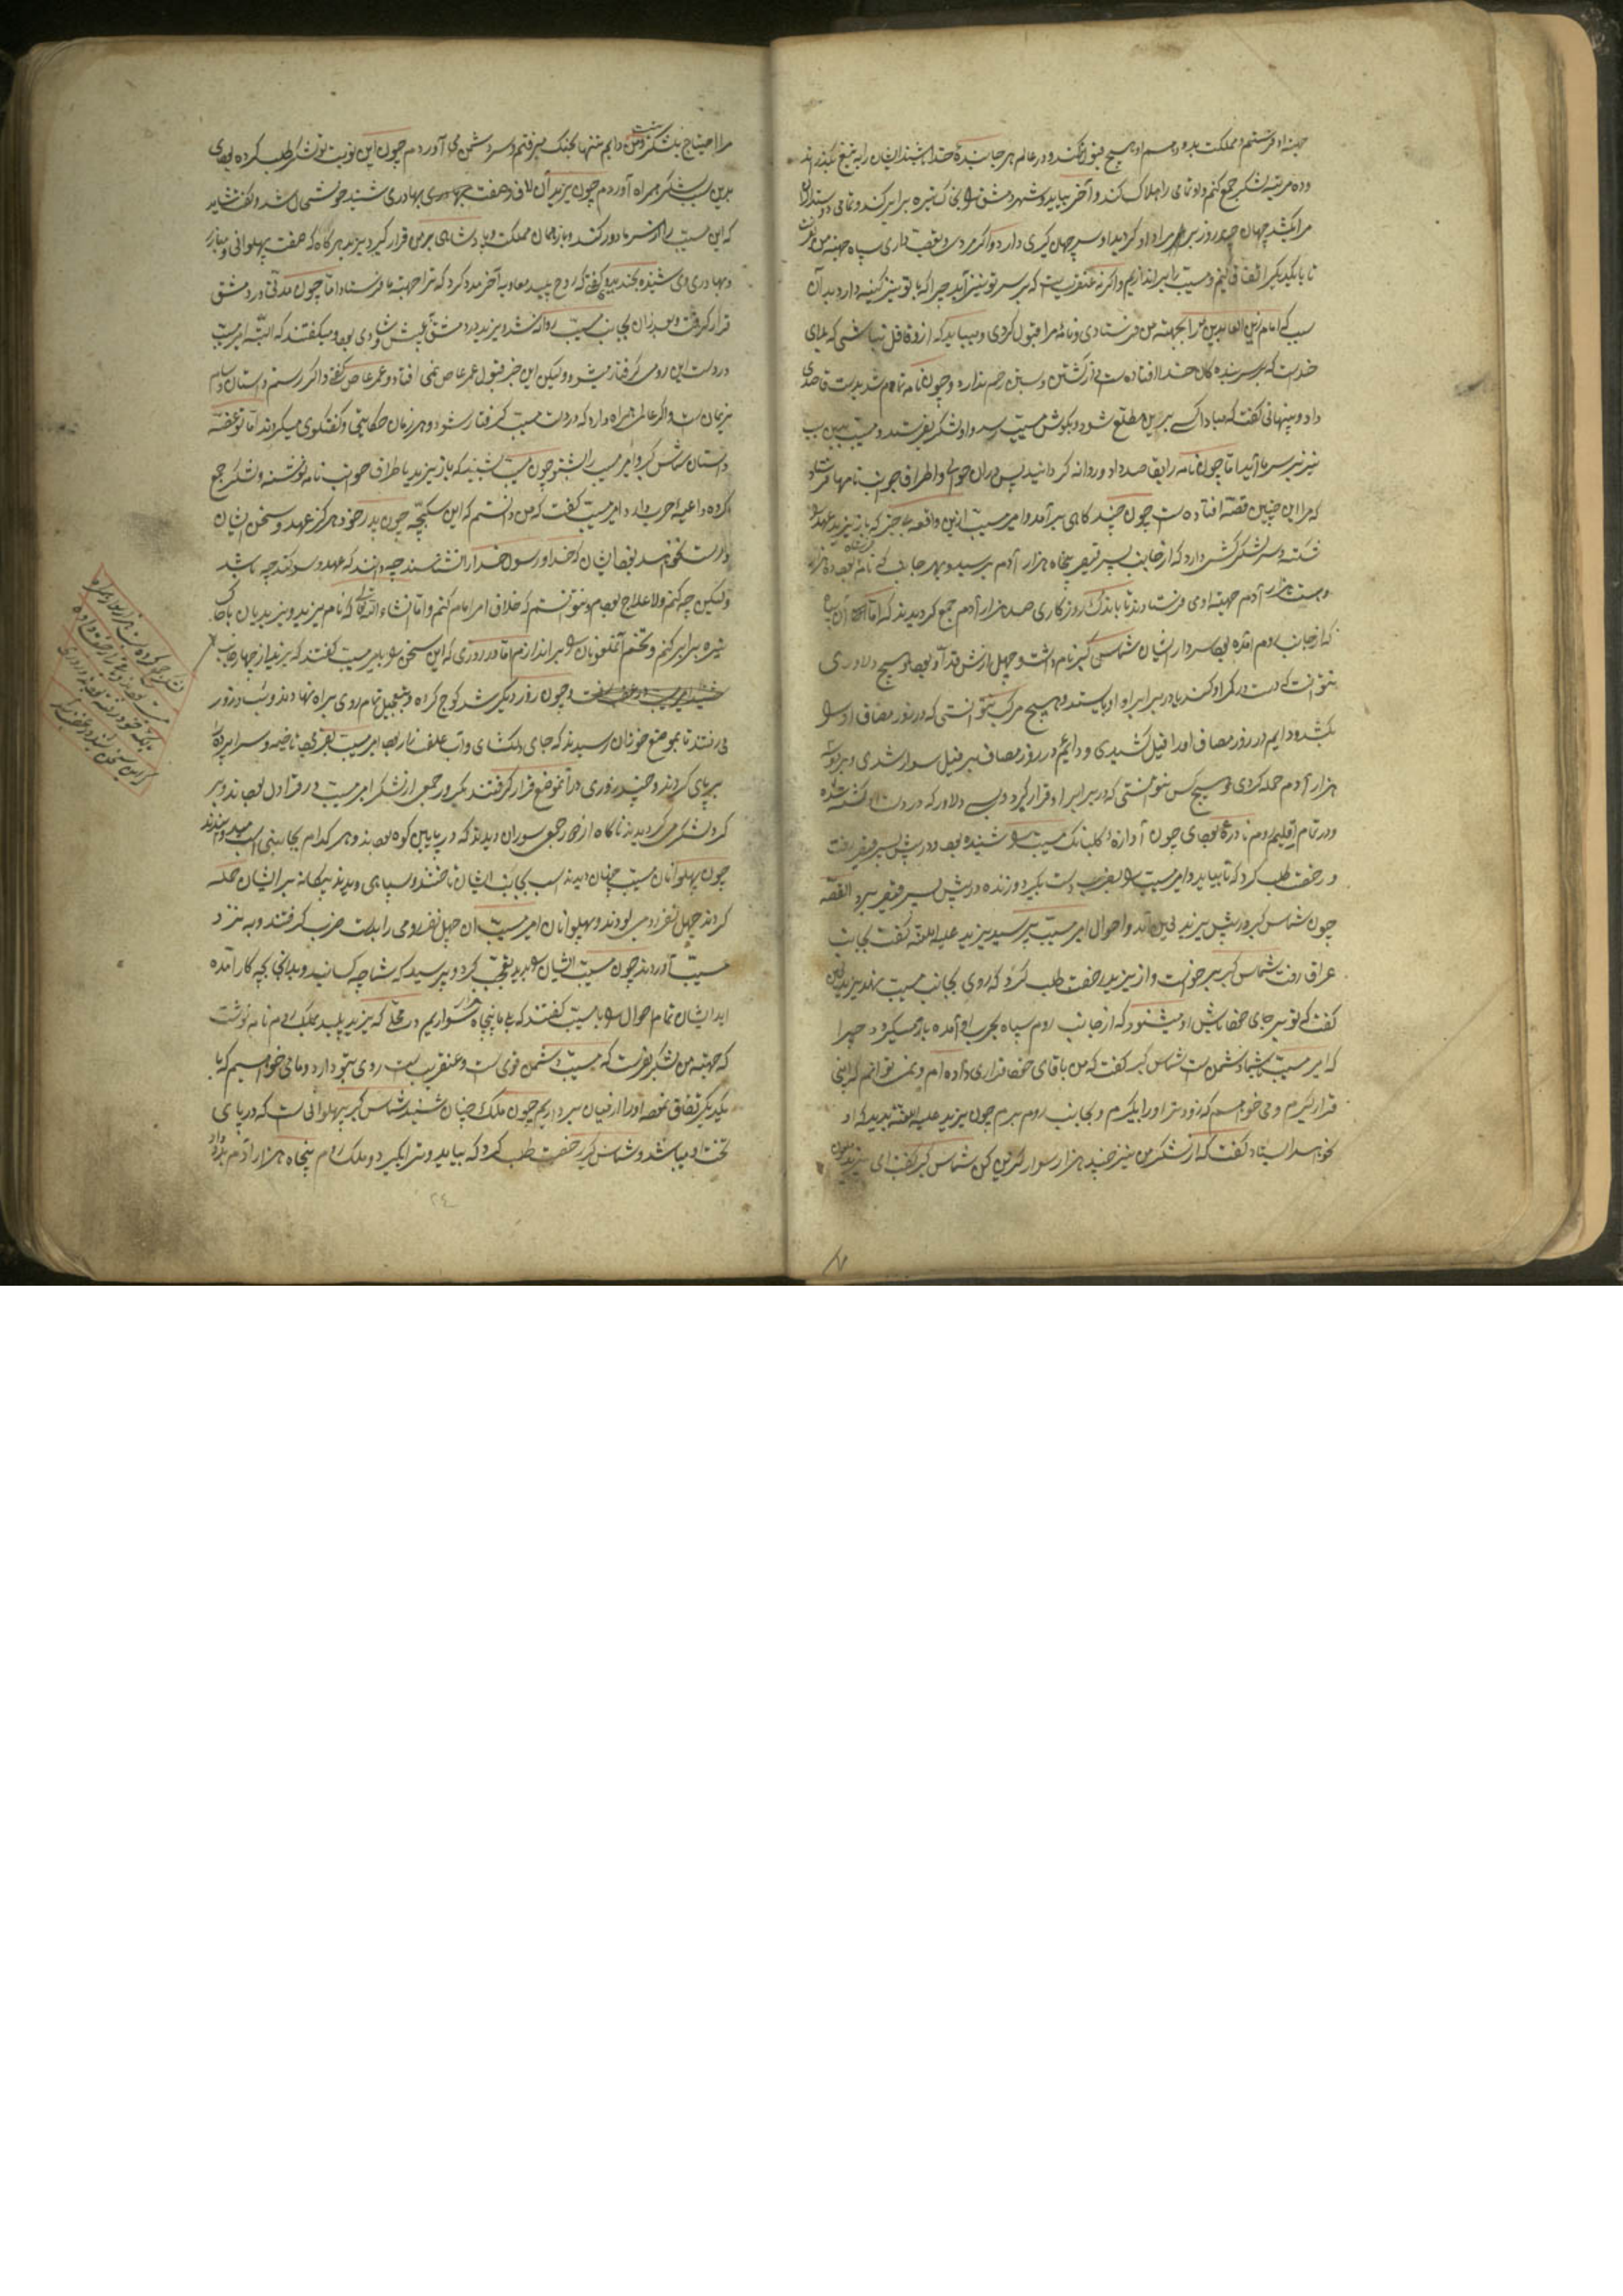 جهته او فرستم و مملکت بدو دهم او هیچ قبول نکند و در عالم هر جا بندهٔ خدا باشند ایشان را به تیغ بگذراند
و ده مرتبه لشکر جمع کنم و او تمامی را هلاک کند و آخر بیاید و شهر دمشق را بخاک تیره برابر کند و تمامی
مرا بکشد چهان
تا با یکدیگر اتفاق کنیم و مسیب را براندازیم و اگر نه عنقریبست که بر سر تو نیز آید چرا که با تو نیز کینه دارد بدان
سبب که امام زین العابدین را بجهته من فرستادی و نامهٔ مرا قبول کردی و میباید که ازو غافل نباشی که بلای
خدیست که بر سر بندگان خدا افتاده است از کشتن و بستن رحم ندارد و چون نامه تمام شد بدست قاصدی
داد و پنهانی گفت که مبادا کسی برین مطلع شود و بگوش مسیب رسد و او لشکر بفرستد و مسیب
نیز بر سر ما آید اما چون نامه را بقاصد داد و روانه گردانید پس دران حوالی و اطراف و جوانب نامها فرستاد
که مرا این چنین قصّه افتاده است چون چند گاهی برآمد و امیر مسیب ازین واقعه عاجز که باز یزید عهد را
شکسته و سر لشکر کشی دارد که از جانب پسر قیصر پنجاه هزار آدم برسید و بهر جانب که نامه فرستاده بود ده هزار
و بیست هزار آدم جهته اوی فرستادند تا باندک روزگاری صد هزار آدم جمع گردیدند اما آن سپاه
که از جانب روم آمده بود سردار ایشان شماس گبر نام داشت و چهل ارش قد او بود و هیچ دلاوری
نتوانست که دست در کمر او کند یا در برابر او بایستد و هیچ مرکب نتوانستی که در روز مصاف او را
بکشد و دایم در روز مصاف او را فیل کشیدی و دایم در روز مصاف بر فیل سوار شدی و بر
هزار آدم حمله کردی و هیچ کس نتوانستی که در برابر او قرار گیرد و بسی دلاور که در دست او کشته شده
و در تمام اقلیم روم نادره بودی چون آوازه و گلبانک مسیب را شنیده بود در پیش پسر قیصر رفت
و رخصت طلب کرد که تا بیاید و امیر مسیب را بضرب دست بگیرد و زنده در پیش پسر قیصر برد القصّه
چون شماس گبر در پیش یزید لعین آمد و احوال امیر مسیب پرسید یزید علیه اللعنه گفت بجانب
عراق رفت شماس گبر برخواست و از یزید رخصت طلب کرد که روی بجانب مسیب نهد یزید لعین
گفت که تو بر جای خود باش او میشنود که از جانب روم سپاه بحرب او آمده باز میگردد چرا
که امیر مسیب شما دشمن است شماس گبر گفت که من باقای خود قراری داده ام و نمیتوانم که اینجا
قرار گیرم و می خواهم که زودتر او را بگیرم و بجانب روم برم چون یزید علیه اللعنه بدید که او
نخواهد ایستاد گفت که از لشکر من نیز چند هزار سوار گزین کن شماس گبر گفت ای یزید ملعون
مرا احتیاج بلشکر تو نیست و من دایم تنها بجنک میرفتم و سر دشمن می آوردم چون این نوبت تو لشکر طلب کرده بودی
بدین سبب لشکر همراه آوردم چون یزید آن لاف و هفت بهادری شنید خوشحال شد و گفت شاید
که این مسیب را از سر ما دور کند و باز همان مملکت و پادشاهی بر من قرار گیرد یزید هر گاه که هفت پهلوانی و
و بهادری وی شنیده بخندیدی و گفتی که روح پلید معاویه آخر مدد کرد که ترا جهته ما فرستاد اما چون مدتی در دمشق
قرار گرفت و بعد از آن بجانب مسیب روانه شد یزید در دمشق بعیش و شادی بود و میگفتند که البتّه امیر مسیب
در دست این رومی گرفتار میشود و لیکن این خبر قبول عمر عاص نمی افتاد و عمر عاص گفت اگر رستم داستان و سام
نریمان است و اگر عالم همراه دارد که در دست مسیب گرفتار شود و هر زمان حکایتی و گفتگوی میکردند اما تو قصّه
داستان شماس گبر و امیر مسیب را بشنو چون مسیب شنید که باز یزید باطراف جوانب نامه نوشته و لشکر جمع
کرده داعیه حرب دارد امیر مسیب گفت که من دانستم که این سگبچّه چون پدر خود هرگز عهد و سخن ایشان
درست نخواهد بود ایشان که خدا و رسول خدا را نشناسند چه دانند که عهد و سوگند چه باشد
و لیکن چه کنم ولا علاج بودم و نتوانستم که خلاف امر امام کنم و اما انشاء الله تعالی که نام یزید و یزیدیان با خاک
تیره برابر کنم و تخم آن ملعونان را براندازم اما در روزی که این سخن را بامیر مسیب گفتند که یزید از چهار جانب
چون روز دیگر شد کوچ کرده و بتعجیل تمام روی براه نهادند و شب و روز
می رفتند تا بموضع خوذان رسیدند که جای دلکشای و آب علف زار بود امیر مسیب بفرمود تا خیمه و سراپرده
برپای کردند و چند روزی در آن موضع قرار گرفتند یک روز جمعی از لشکر امیر مسیب در قراول بودند و بر
گرد لشکر می گردیدند ناگاه از دور جمعی سواران دیدند که در پایین کوه بودند و هر کدام بجانبی اسب میدوانیدند
چون پهلوانان مسیب چنان دیدند اسب بجانب ایشان تاختند و سپاهی دیدند بیگانه بر ایشان حمله
کردند چهل نفر رومی بودند و پهلوانان امیر مسیب ان چهل نفر رومی را بدست ضرب گرفتند و به نزد
مسیب آوردند چون مسیب ایشان را بدید تعجب کرد و پرسید که شما چه کسانید و بدین جا بچه کار آمده
اید ایشان تمام احوال را با مسیب گفتند که ما پنجاه هزار سواریم در محلی که یزید پلید بملک روم نامه نوشت
که جهته من لشکر بفرست که مسیب دشمن قوی است و عنقریب است روی بتو دارد و ما می خواهیم که با
یکدیگر اتفاق نموده او را از میان برداریم چون ملک چنان شنید شماس گبر پهلوانی است که در پای
تخت او میباشد و شماس گبر رخصت طلب کرد که بیاید و ترا بگیرد و ملک روم پنجاه هزار آدم بدو داد
۲۴